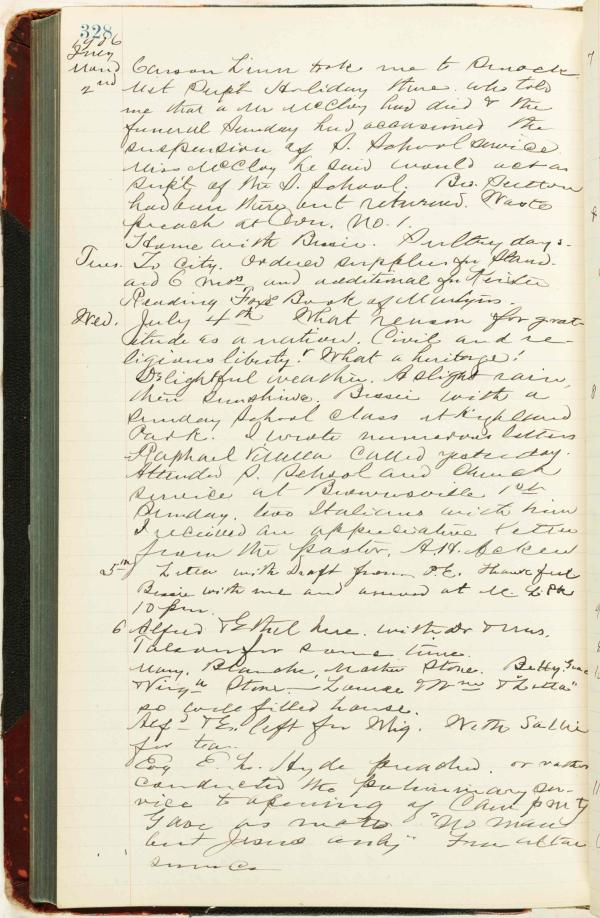 328
1906
July
Mond
2nd
Carson Linn took me to
Met Supt Holiday there who told
me that a Mr McCloy had died & the
funeral Sunday had occasioned the
suspension of S. School service
Miss McCloy he said would act as
supt of the S. School. Bro. Sutton
had been there but returned. Was to
preach at Con. No. 1.
Home with Bessie. Sultry days-
Tues. To City. Ordered supplies for
and 6 mos and additional for
Reading Fox's Book of Martyrs.
Wed. July 4th What reason for grat-
itude as a nation. Civil and re-
ligious liberty! What a heritage!
Delightful weather. A slight rain,
then sunshine. Bessie with a
Sunday School class at Highland
Park. I wrote numerous letters
Raphael called yesterday.
Attended S. School and Church
service at Brownsville 1st
Sunday. two Italians with him
I received an appreciative letter
from the pastor, A.H. Acken
5th Letter with Draft from F.E. Thankful
Bessie with me and arrived at M. L. Pk
10 pm.
6 Alfred & Ethel here. with Dr & Mrs.
for some time.
Mary, Blanche, Master Stone. Betty Grace
& Virga Stone. Louise & Wm & "Letta"
so well filled house.
Alfd & E. left for Mtg. With Sallie
for tea.
E. L. Hyde preached. or rather
conducted the preliminary ser-
vice to opening of Camp mtg
Gave as motto "No man
but Jesus only" Fine altar
service